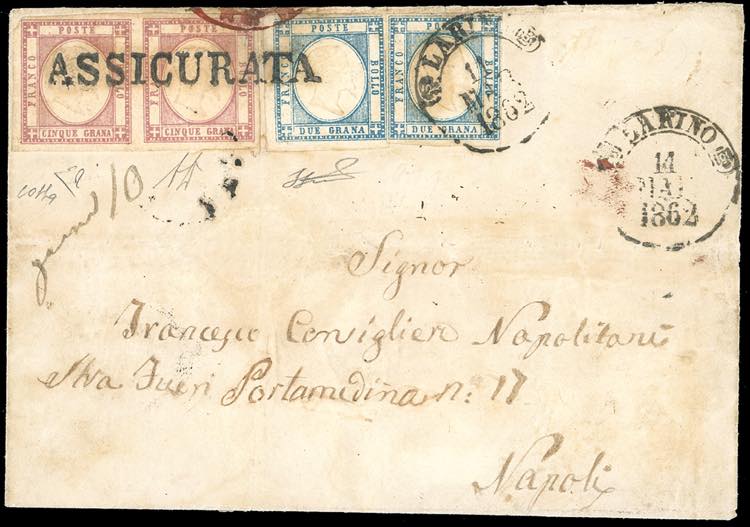 POSTE
FRANCO
BOLLO
CINQUE GRANA
POSTE
FRANCO
BOLLO
CINQUE GRANA
ASSICURATA
POSTE
FRANCO
BOLLO
DUE GRANA
POSTE
FRANCO
BOLLO
DUE GRANA
LARINO
1862
LARINO
14
MAG
1862
10
Signor
Francesco Consigliere Napolitani
Fuori Portamedina n: 17
Napoli